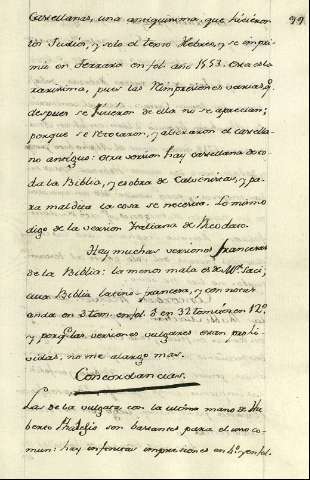 99
Castellanas, una antiquissima, que hicieron
los Judios, y solo el texto Hebreo, y se impri-
mio en Ferrara en fol. año 1553. Esta es la
rarissima, pues las Reimpresiones varias q.
despues se hicieron de ella no se aprecian;
porque se retocaron, y alteraron el castella-
no antiguo: otra version hay castellana de to-
da la Biblia, y es obra de Calvinistas, y pa-
ra maldita la cosa se necesita. Lo mismo
digo de la version Italiana de Deodato.
Hay muchas versiones francesas
de la Biblia: la menos mala es de Mr. Saci,
cuia Biblia latino-francesa, y con notas
anda en 3 tom. en fol. ó en 32 tomitos en 12.º
y porq. las versiones vulgares estan prohi-
vidas, no me alargo mas.
Concordancias.
Las de la vulgata con la ultima mano de Hu-
berto Phalesio son bastantes para el uso co-
mun: hay infinitas impresiones en 4.º y en fol.